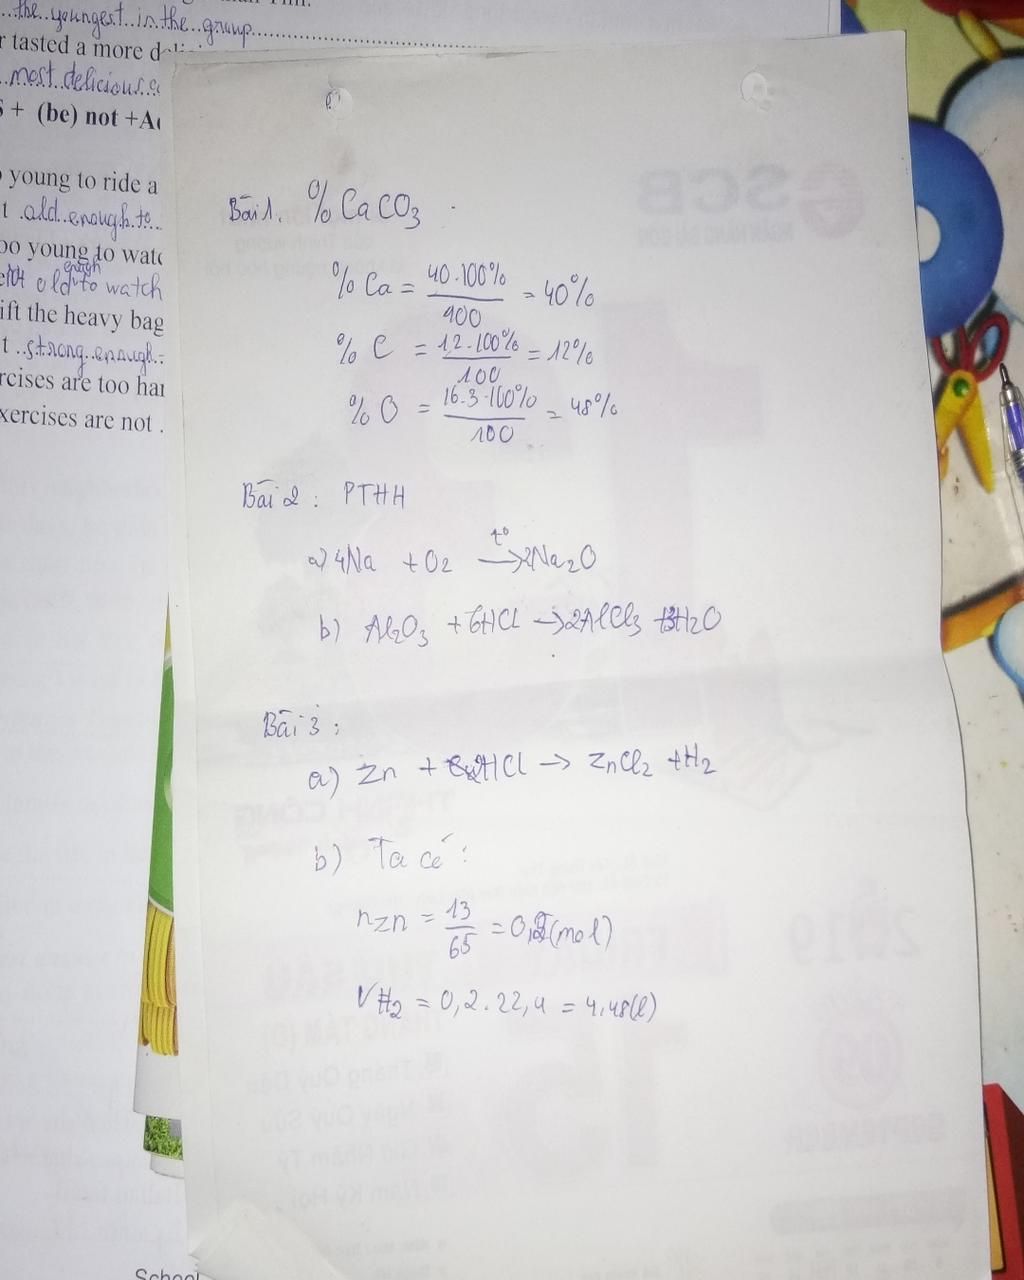 ..the youngest..in.the..group..........
r tasted a more
..most.delicious.
S + (be) not +A
young to ride a
t .old..enough.to..
oo young to watc
enough
old to watch
ift the heavy bag
t ..strong.enough.
rcises are too har
xercises are not .
Bài 1. % CaCO3
% Ca = 40.100% / 100 = 40%
% C = 12.100% / 100 = 12%
% O = 16.3.100% / 100 = 48%
Bài 2 : PTHH
a) 4Na + O2 →t° 2Na2O
b) Al2O3 + 6HCl → 2AlCl3 + 3H2O
Bài 3 :
a) Zn + 2HCl → ZnCl2 + H2
b) Ta có :
nZn = 13 / 65 = 0,2 (mol)
VH2 = 0,2.22,4 = 4,48(l)
SCB
NGÂN HÀNG SÀI GÒN
2019
School